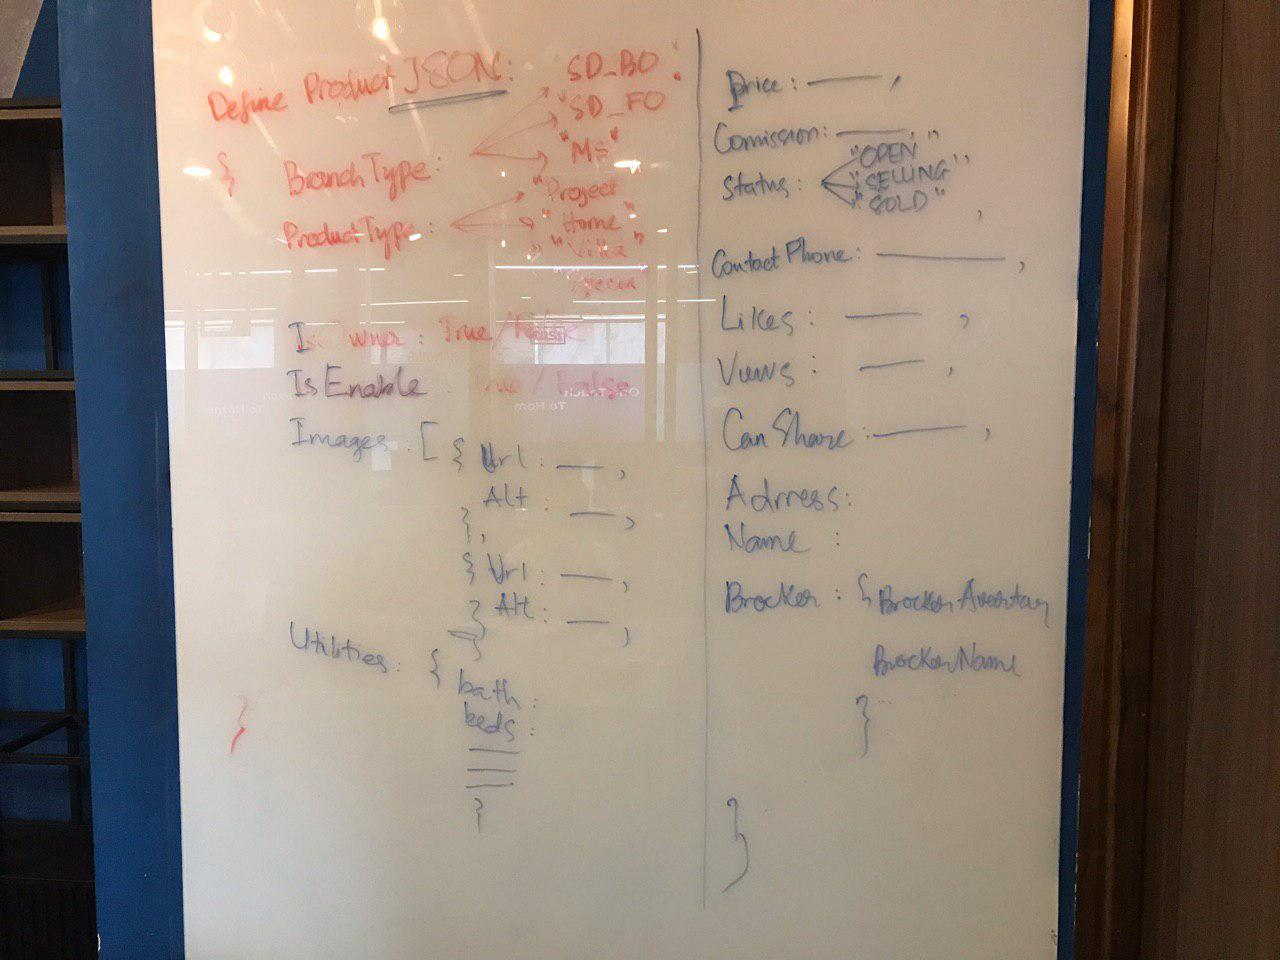 Define Product JSON:
SD_BO
"SD_FO
"MS"
{ BranchType:
"Project
"Home"
"Villa"
ProductType:
IsOwner: True/False
IsEnable True/False
Images: [ { Url: ,
Alt: ,
},
{ Url: ,
Alt: ,
}
Utilities: {
bath:
beds:
}
}
Price: ,
Comission: ,
Status: "OPEN"
"SELLING"
"SOLD"
,
ContactPhone: ,
Likes: ,
Views: ,
CanShare: ,
Adrress:
Name:
Brocker: {
BrockerName
}
}
To Home